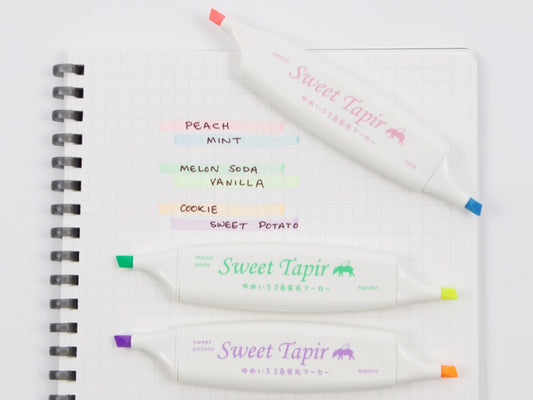 peach
Sweet Tapir
ゆめいろ2色蛍光マーカー
mint
PEACH
MINT
MELON SODA
VANILLA
COOKIE
SWEET POTATO
melon
soda
Sweet Tapir
ゆめいろ2色蛍光マーカー
vanilla
sweet
potato
Sweet Tapir
ゆめいろ2色蛍光マーカー
cookie